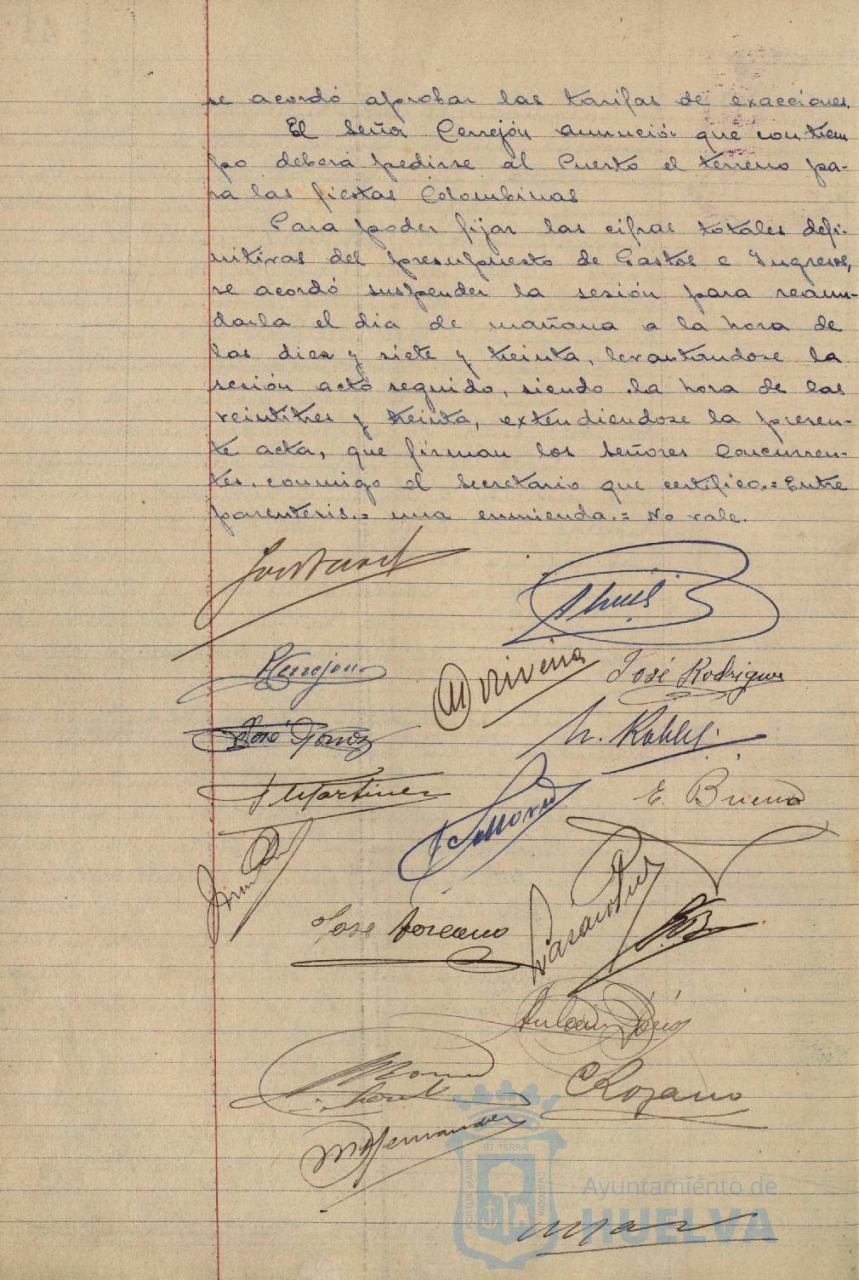 se acordó aprobar las tarifas de exacciones.
El Señor Cerrejón anunció que con tiem
po deberá pedirse al Puerto el terreno pa-
ra las fiestas Colombinas
Para poder fijar las cifras totales defi-
nitivas del presupuesto de Gastos e Ingresos,
se acordó suspender la sesión para reanu-
darla el dia de mañana a la hora de
las diez y siete y treinta, levantandose la
sesión acto seguido, siendo la hora de las
veintitres y treinta, extendiendose la presen-
te acta, que firman los Señores Concurren-
tes. conmigo el Secretario que certifico.=Entre
parentesis.= una enmienda.= No vale.
Cerrejon
Riveira
José Rodriguez
José Ponce
M. Robles
Martinez
E. Bueno
Jose
Rozano
M Hernandez
ET TERRA
Ayuntamiento de
HUELVA